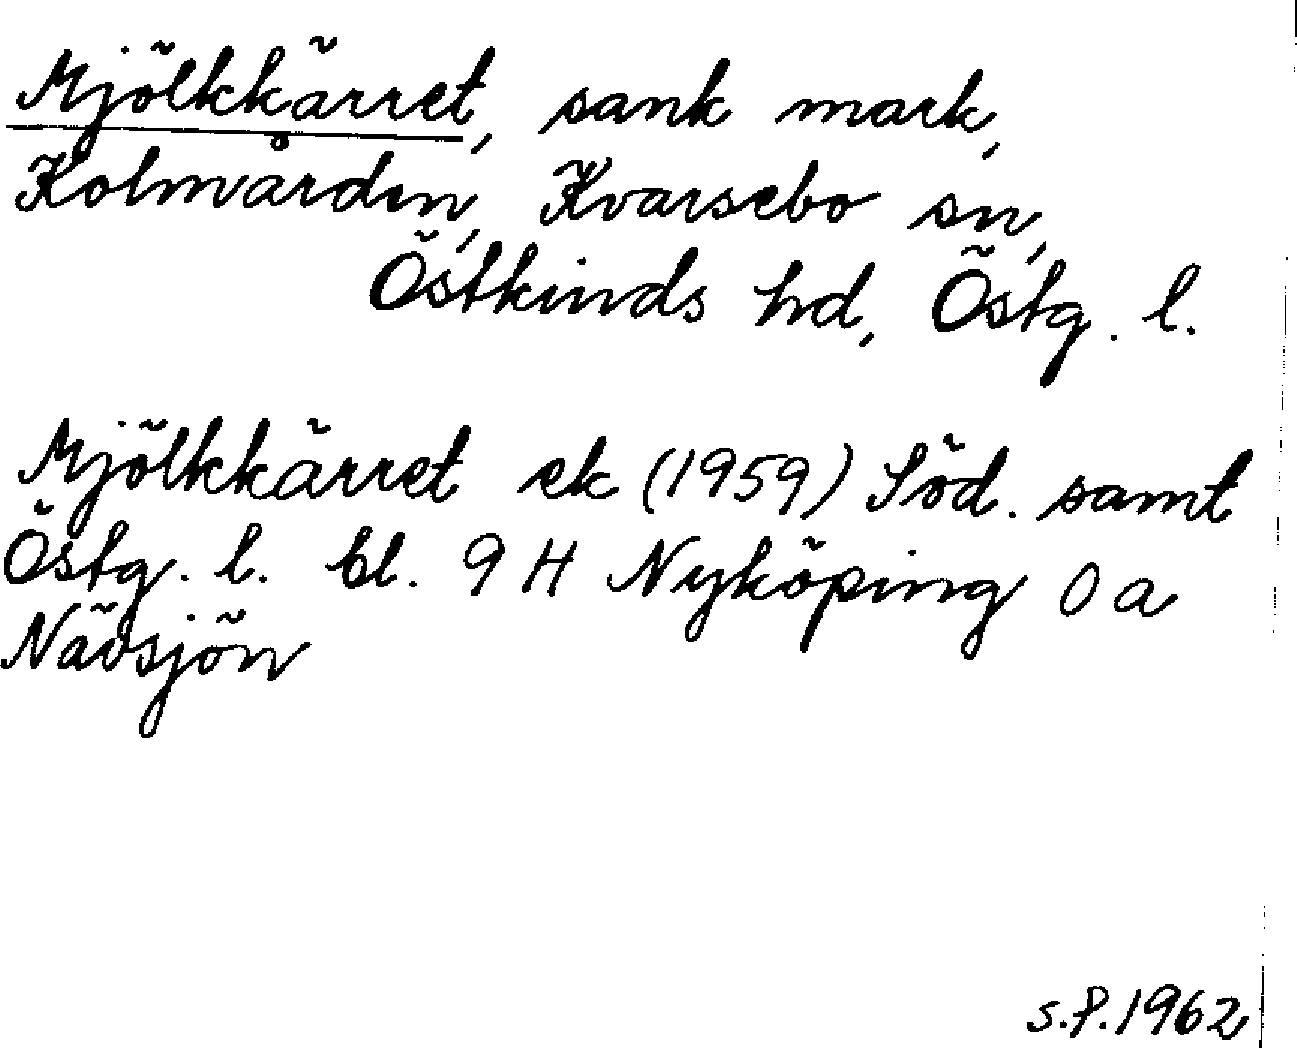 Mjölkkärret, sank mark,
Kolmården, Kvarsebo sn,
Östkinds hd, Östg. l.
Mjölkkärret ek (1959) Söd. samt
Östg. l. bl. 9 H Nyköping 0 a
Nävsjön
S.P. 1962